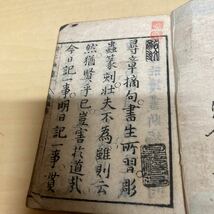 尋章摘句書生所習彫
蟲篆刻壮夫不為雖則云
然猶賢乎已豈害於道哉
今日記一事明日記一事貫